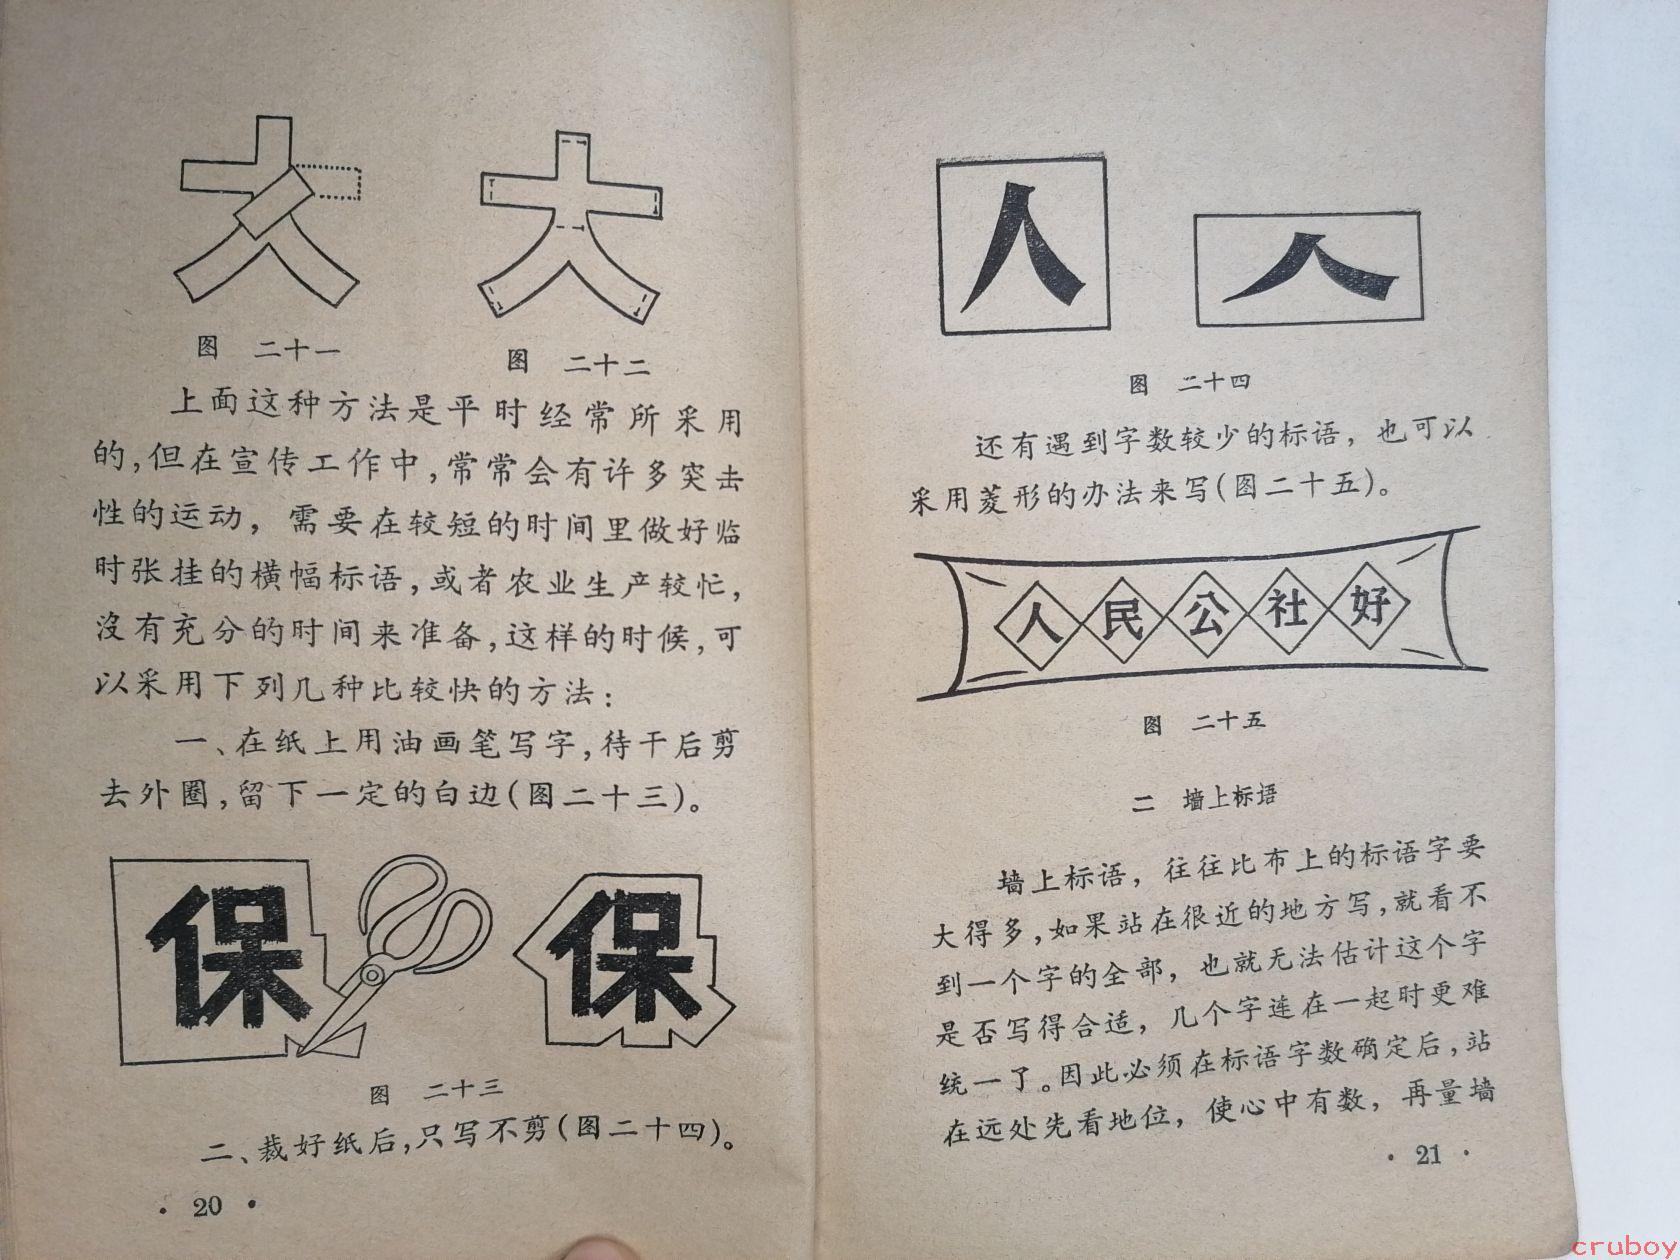 图 二十一
图 二十二
上面这种方法是平时经常所采用
的，但在宣传工作中，常常会有许多突击
性的运动，需要在较短的时间里做好临
时张挂的横幅标语，或者农业生产较忙，
沒有充分的时间来准备，这样的时候，可
以采用下列几种比较快的方法：
一、在纸上用油画笔写字，待干后剪
去外圈，留下一定的白边（图二十三）。
保
保
图 二十三
二、裁好纸后，只写不剪（图二十四）。
· 20 ·
人
人
图 二十四
还有遇到字数较少的标语，也可以
采用菱形的办法来写（图二十五）。
人民公社好
图 二十五
二 墙上标语
墙上标语，往往比布上的标语字要
大得多，如果站在很近的地方写，就看不
到一个字的全部，也就无法估计这个字
是否写得合适，几个字连在一起时更难
统一了。因此必须在标语字数确定后，站
在远处先看地位，使心中有数，再量墙
· 21 ·
cruboy